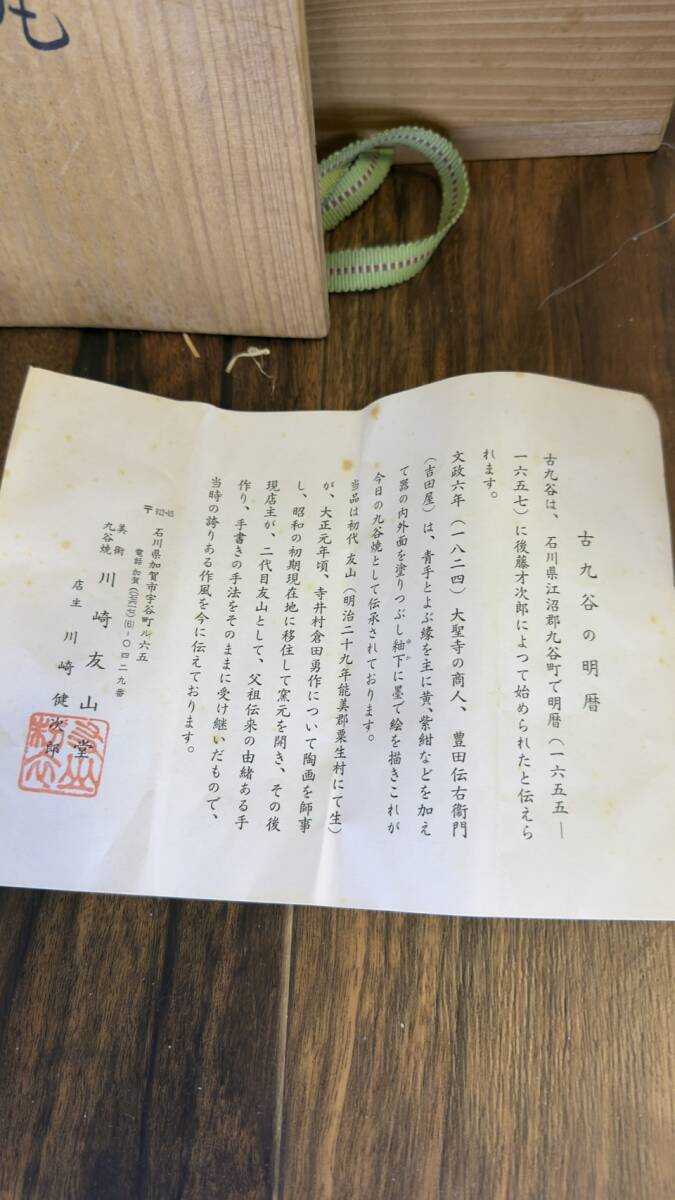 古九谷の明暦
古九谷は、石川県江沼郡九谷町で明暦(一六五五―
一六五七)に後藤才次郎によつて始められたと伝えら
れます。
文政六年(一八二四)大聖寺の商人、豊田伝右衞門
(吉田屋)は、青手とよぶ緑を主に黄、紫紺などを加え
て器の内外面を塗りつぶし釉下に墨で絵を描きこれが
今日の九谷焼として伝承されております。
当品は初代 友山(明治二十九年能美郡粟生村にて生)
が、大正元年頃、寺井村倉田勇作について陶画を師事
し、昭和の初期現在地に移住して窯元を開き、その後
現店主が、二代目友山として、父祖伝来の由緒ある手
作り、手書きの手法をそのままに受け継いだもので、
当時の誇りある作風を今に伝えております。
〒922-03 石川県加賀市宇谷町ル六五
電話 加賀
〇四二九番
美術
九谷焼
川崎友山堂
店主 川崎健次郎